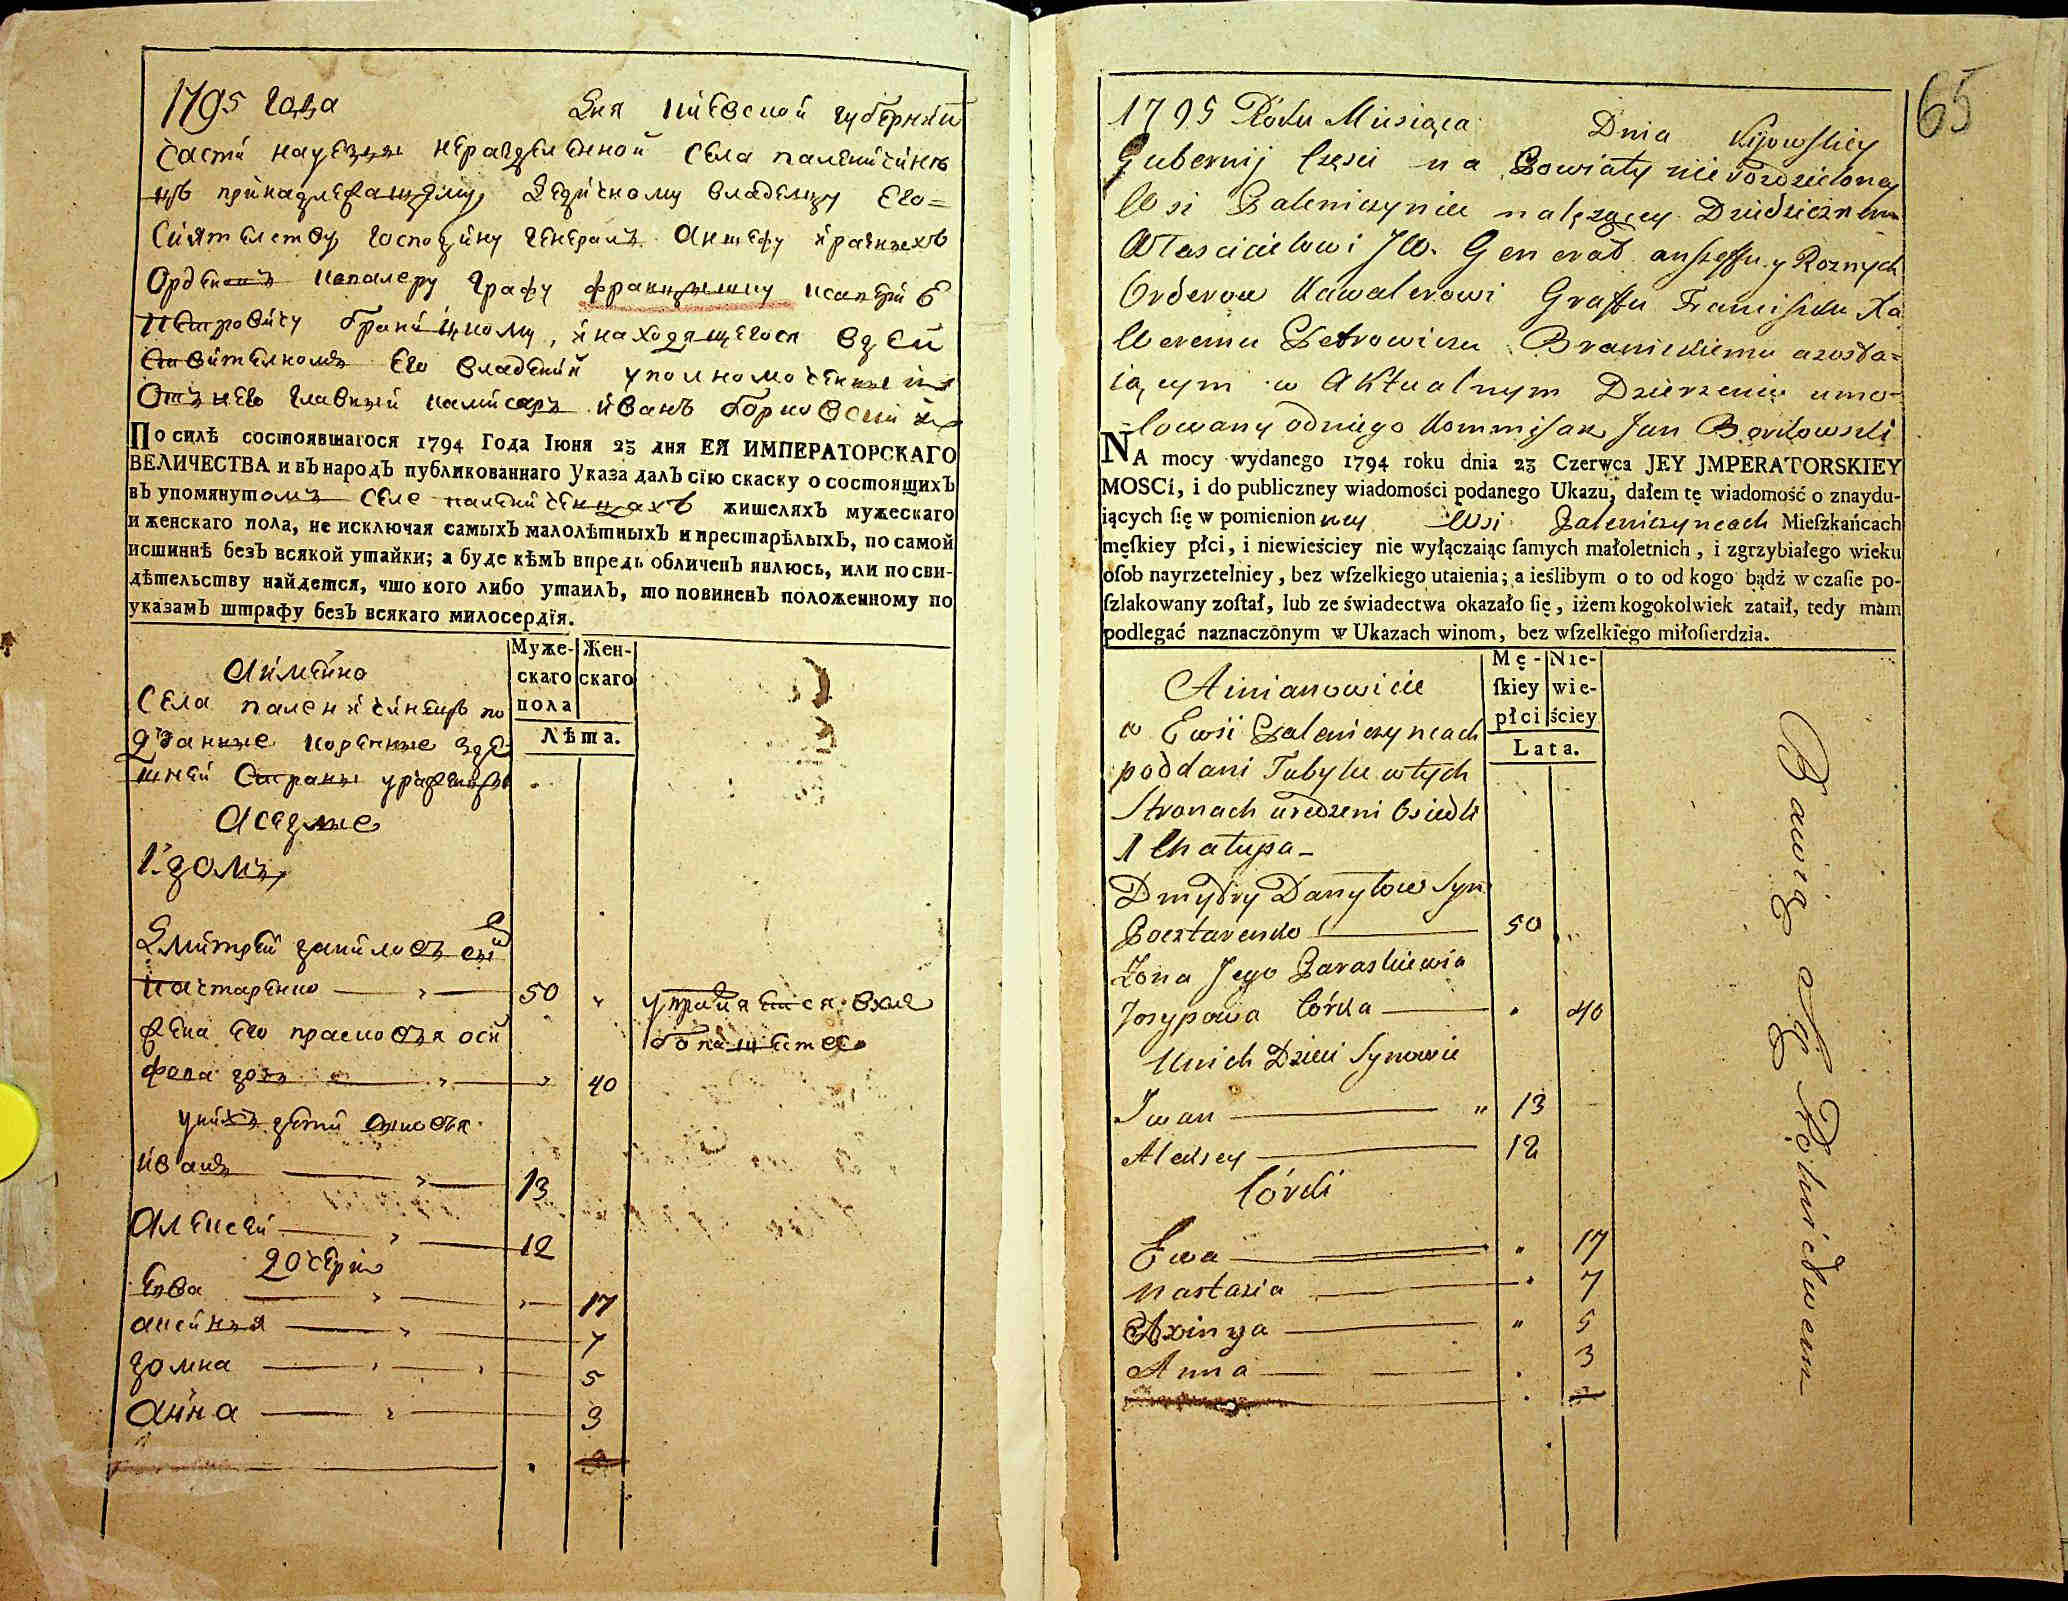 1795 года Дня Киевской губернии
части науезды неразделенной села паленичинъ
принадлежащему дедичному владельцу Его=
Сиятельству господину генералъ Аншефу и разныхъ
Орденовъ кавалеру графу францышку ксаверий
Петровичу браницкому, и находящегося вдей
ствителномъ его владений уполномоченный
Отъ него главный камисаръ иванъ борковский
По силѣ состоявшагося 1794 Года Іюня 23 дня ЕЯ ИМПЕРАТОРСКАГО
ВЕЛИЧЕСТВА и въ народъ публикованнаго Указа далъ сію скаску о состоящихъ
въ упомянутомъ селе паленичинцахъ жителяхъ мужескаго
и женскаго пола, не исключая самыхъ малолѣтныхъ и престарѣлыхъ, по самой
истиннѣ безъ всякой утайки; а буде кѣмъ впредь обличенъ явлюсь, или по сви-
дѣтельству найдется, что кого либо утаилъ, то повиненъ положенному по
указамъ штрафу безъ всякаго милосердія.
Муже-
скаго
пола
Жен-
скаго
Лѣта.
Аимено
Села паленичинецъ по
дданные коренные зде
шней страны
Аседлые
1. домъ
Дмитрей даниловъ сынъ
50
жена его прасковья оси
фова 40
уних детей сыновья
иванъ 13
Алексей 12
дочери
Евва 17
7
домна 5
Анна 3
управляется вхле
бопашестве
65
1795 Roku Miesiąca Dnia Kijowskiey
Gubernij Części na Powiaty nierozdzieloney
Wsi Paleniczyniec należącey Dziedzicznem
Włascicielowi JW. Generał anszeffu y Roznych
Orderow Kawalerowi Graffu Franciszku Xa
weremu Petrowiczu Branickiemu azosta=
iącym w Aktualnym Dzierzeniu umo=
cowany odniego Kommisarz Jan Borkowski
NA mocy wydanego 1794 roku dnia 23 Czerwca JEY JMPERATORSKIEY
MOSCi, i do publiczney wiadomości podanego Ukazu, dałem tę wiadomość o znaydu-
iących ſię w pomienionney Wsi Paleniczyncach Mieſzkańcach
męſkiey płci, i niewieściey nie wyłączaiąc ſamych małoletnich, i zgrzybiałego wieku
oſob nayrzetelniey, bez wſzelkiego utaienia; a ieślibym o to od kogo bądź w czaſie po-
ſzlakowany zoſtał, lub ze świadectwa okazało ſię, iżem kogokolwiek zataił, tedy mam
podlegać naznaczōnym w Ukazach winom, bez wſzelkiego miłoſierdzia.
Mę-
ſkiey
płci
Nie-
wie-
ściey
Lata.
Aimianowicie
w Ewsi Paleniczyncach
poddani Tubylce wtych
Stronach uredzeni Osiedli
1 Chałupa
Dmytry Danyłow Syn
50
Żona Jego Paraskiewia
Josypowa Córka 40
Unich Dzieci Synowie
Iwan 13
Alexsey 12
Córki
Ewa 17
Nastazia 7
Axinya 5
Anna 3
Bawią się Rolnictwem